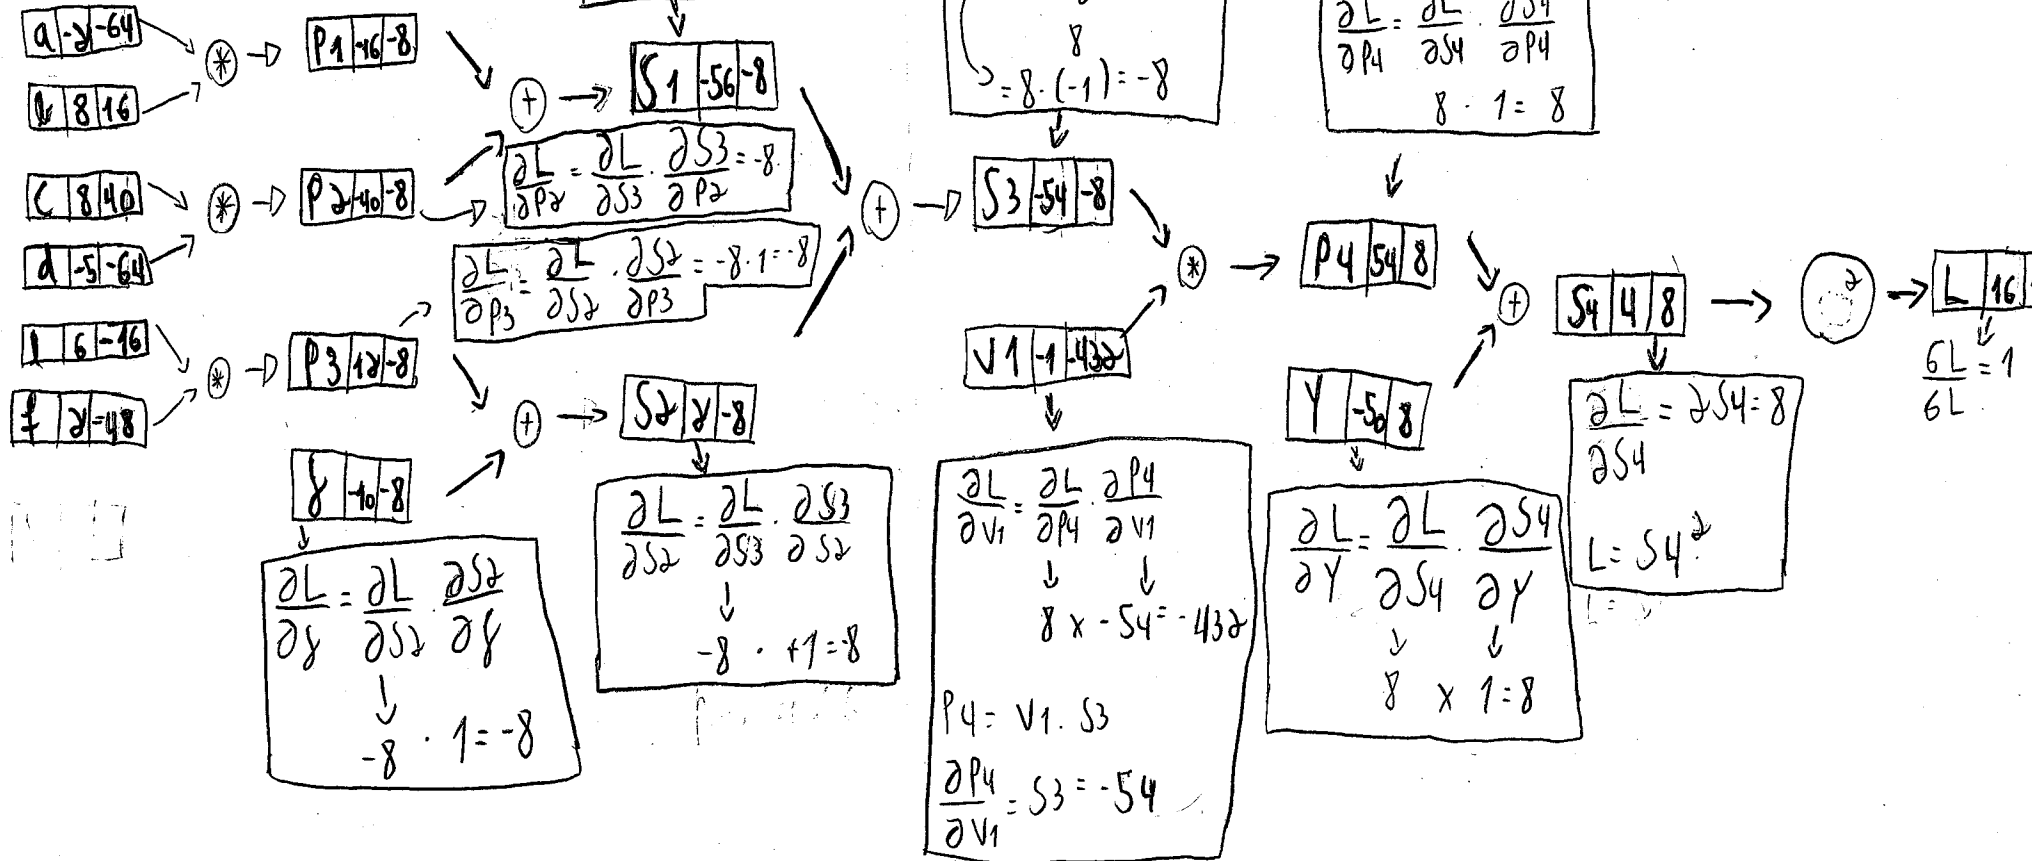 a -2 -64
b 8 16
c 8 40
d -5 -64
l 6 -16
f 2 -48
*
*
*
P1 -16 -8
P2 -40 -8
P3 12 -8
g -10 -8
+
+
S1 -56 -8
∂L/∂P2 = ∂L/∂S3 · ∂S3/∂P2 = -8
∂L/∂P3 = ∂L/∂S2 · ∂S2/∂P3 = -8 · 1 = -8
S2 2 -8
∂L/∂g = ∂L/∂S2 · ∂S2/∂g
-8 · 1 = -8
∂L/∂S2 = ∂L/∂S3 · ∂S3/∂S2
-8 · +1 = -8
+
8
= 8 · (-1) = -8
S3 -54 -8
V1 -1 -432
*
∂L/∂V1 = ∂L/∂P4 · ∂P4/∂V1
8 x -54 = -432
P4 = V1 . S3
∂P4/∂V1 = S3 = -54
∂L/∂P4 = ∂L/∂S4 · ∂S4/∂P4
8 · 1 = 8
P4 54 8
Y -50 8
+
∂L/∂Y = ∂L/∂S4 · ∂S4/∂Y
8 x 1 = 8
S4 4 8
∂L/∂S4 = 2S4 = 8
L = S4²
2
L 16
6L/6L = 1